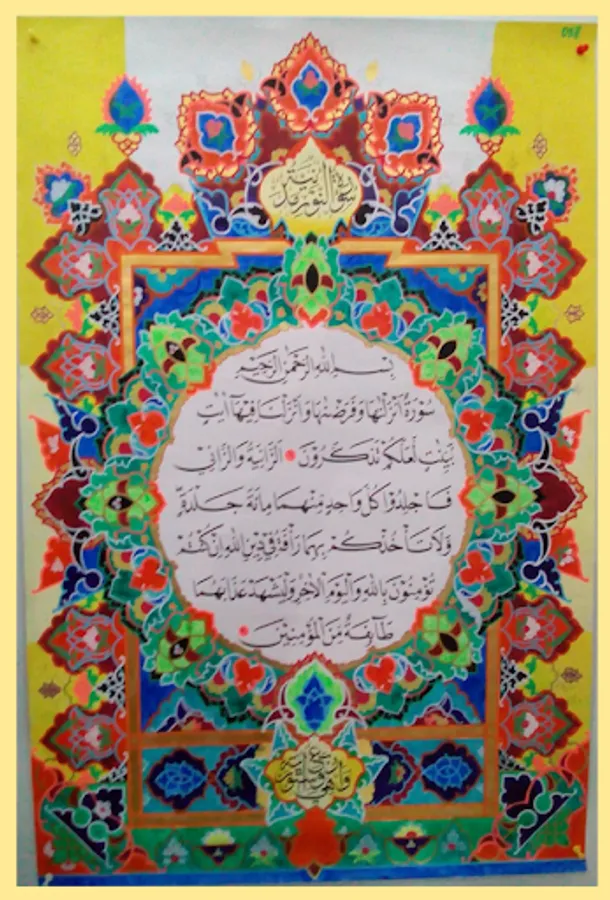 058
سورة النور مدنية
بِسْمِ اللهِ الرَّحْمٰنِ الرَّحِيْمِ
سُوْرَةٌ اَنْزَلْنٰهَا وَفَرَضْنٰهَا وَاَنْزَلْنَا فِيْهَآ اٰيٰتٍ
بَيِّنٰتٍ لَعَلَّكُمْ تَذَكَّرُوْنَ ● اَلزَّانِيَةُ وَالزَّانِيْ
فَاجْلِدُوْا كُلَّ وَاحِدٍ مِّنْهُمَا مِائَةَ جَلْدَةٍ
وَّلَا تَأْخُذْكُمْ بِهِمَا رَأْفَةٌ فِيْ دِيْنِ اللهِ اِنْ كُنْتُمْ
تُؤْمِنُوْنَ بِاللهِ وَالْيَوْمِ الْاٰخِرِ وَلْيَشْهَدْ عَذَابَهُمَا
طَاۤئِفَةٌ مِّنَ الْمُؤْمِنِيْنَ ●